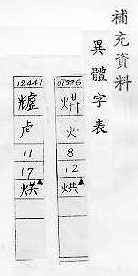 補充資料
異體字表
火
8
12
烘
12441
虍
11
17
烘